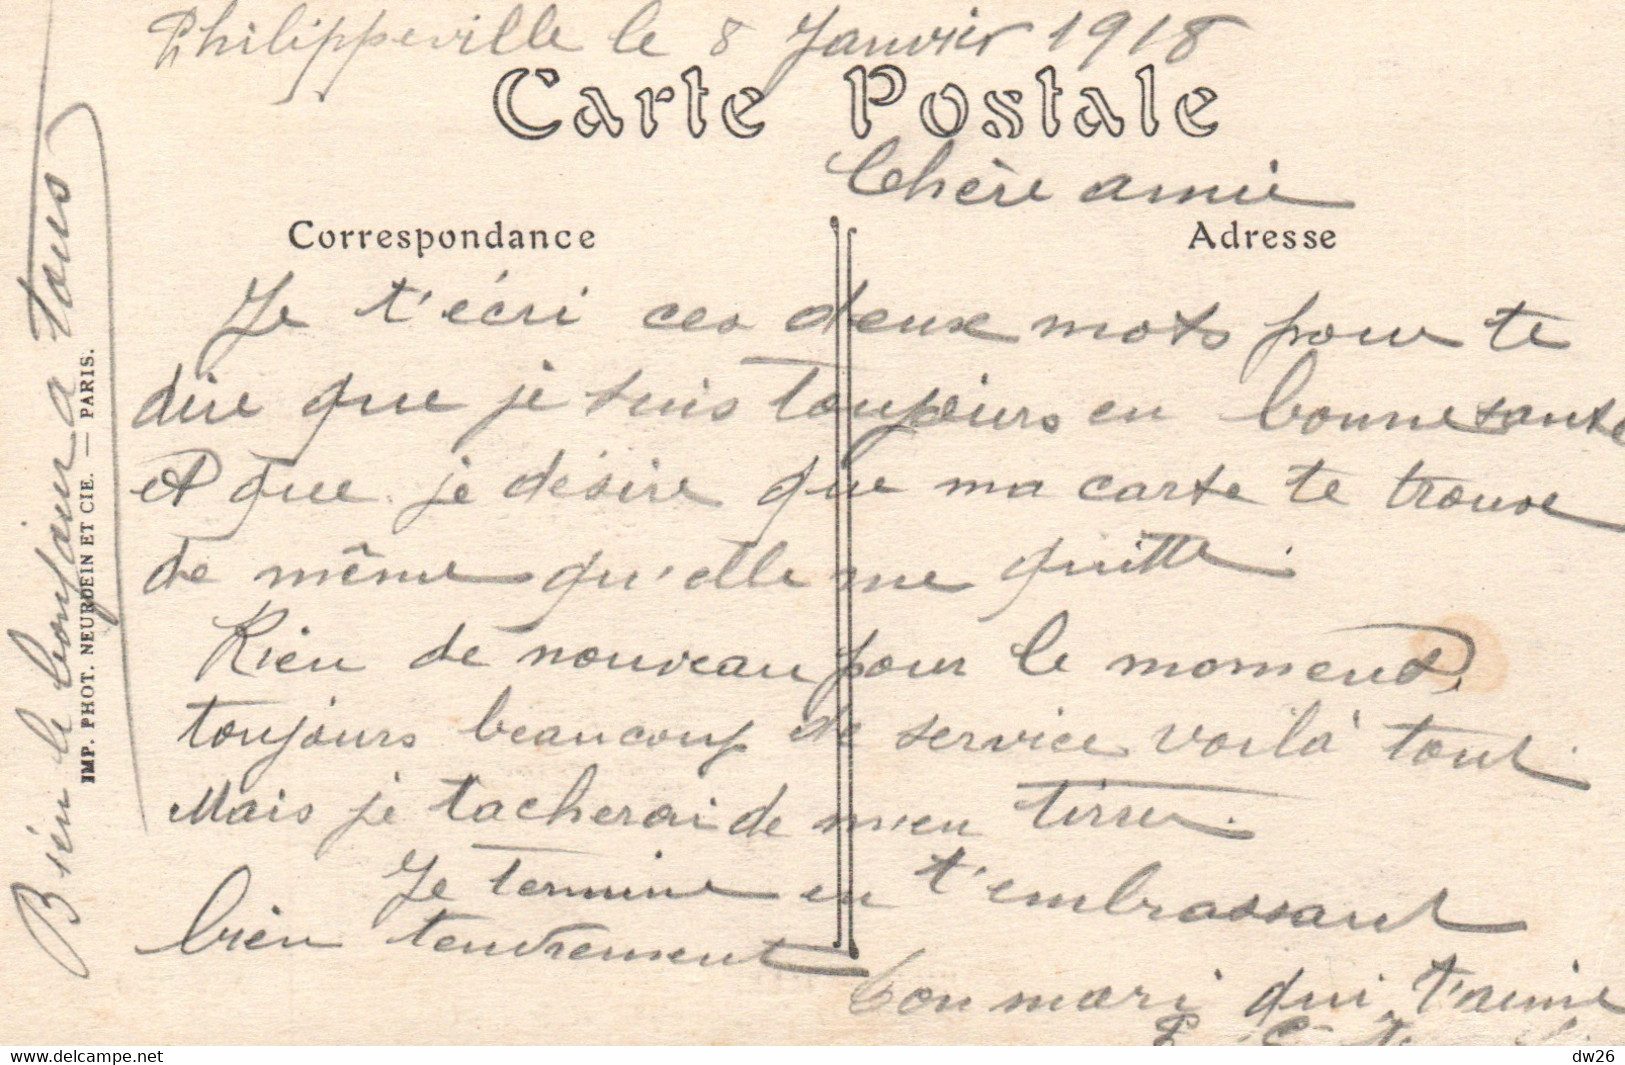 Philippeville le 8 Janvier 1918
Carte Postale
Chère amie
Correspondance
Adresse
Je t'écri ces deux mots pour te
dire que je suis toujours en bonne santé
et que je désire que ma carte te trouve
de même qu'elle me quitte.
Rien de nouveau pour le moment,
toujours beaucoup de service voilà tout.
Mais je tacherai de m'en tirer.
Je termine en t'embrassant
bien tendrement
Ton mari qui t'aime
Bien le bonjour a tous
IMP. PHOT. NEURDEIN ET CIE. — PARIS.
https://www.delcampe.net
dw26